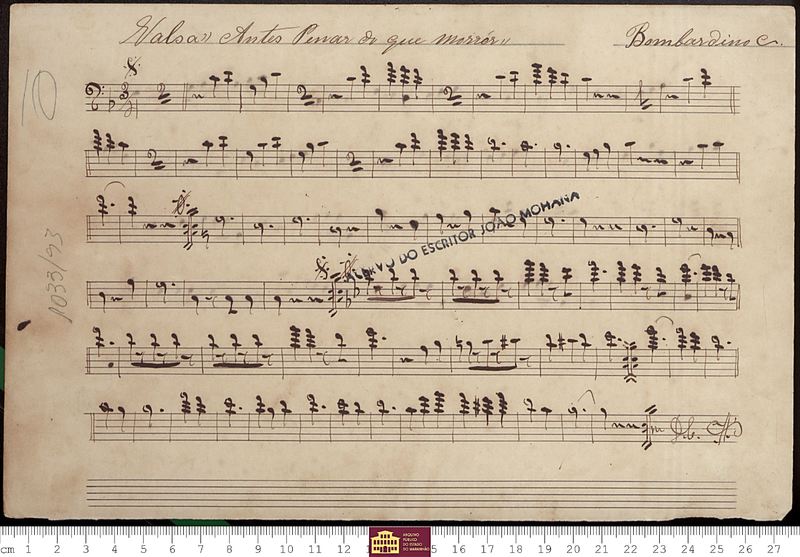 Valsa» Antes Penar do que morrer» Bombardino C.
10
1033/93
ACERVO DO ESCRITOR JOÃO MOHANA
D.C.
cm 1 2 3 4 5 6 7 8 9 10 11 12 13 15 16 17 18 19 20 21 22 23 24 25 26 27
ARQUIVO
PÚBLICO
DO ESTADO
DO MARANHÃO